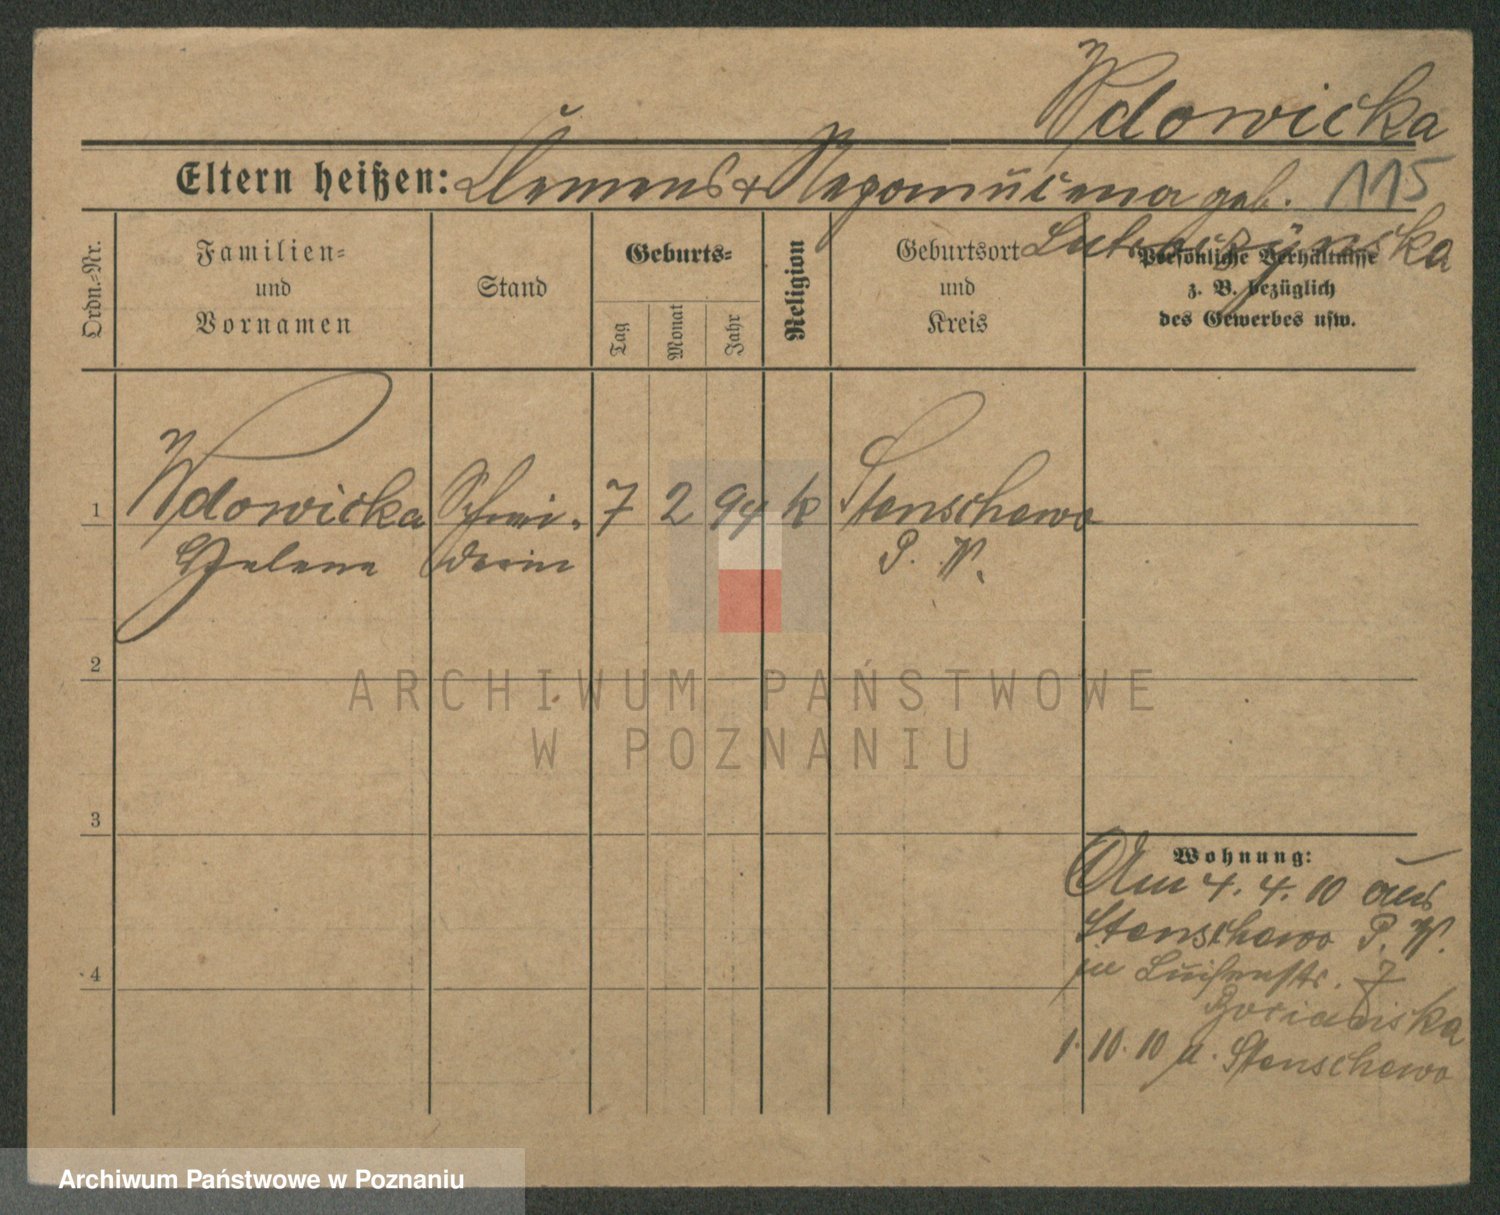 Wdowicka
Eltern heißen: Clemens & Nepomucena geb. 115
Ordn.-Nr.
Familien-
und
Vornamen
Stand
Geburts-
Tag
Monat
Jahr
Religion
Geburtsort
und
Kreis
Persönliche Verhältnisse
z. B. bezüglich
des Gewerbes usw.
1 Wdowicka Schnei- 7 2 94 k Stenschewo
Helena derin P. W.
2
ARCHIWUM PAŃSTWOWE
W POZNANIU
3
Wohnung:
Am 4. 4. 10 aus
Stenschewo P. W.
4 in Luisenstr. 7
1. 10. 10 n. Stenschewo
Archiwum Państwowe w Poznaniu